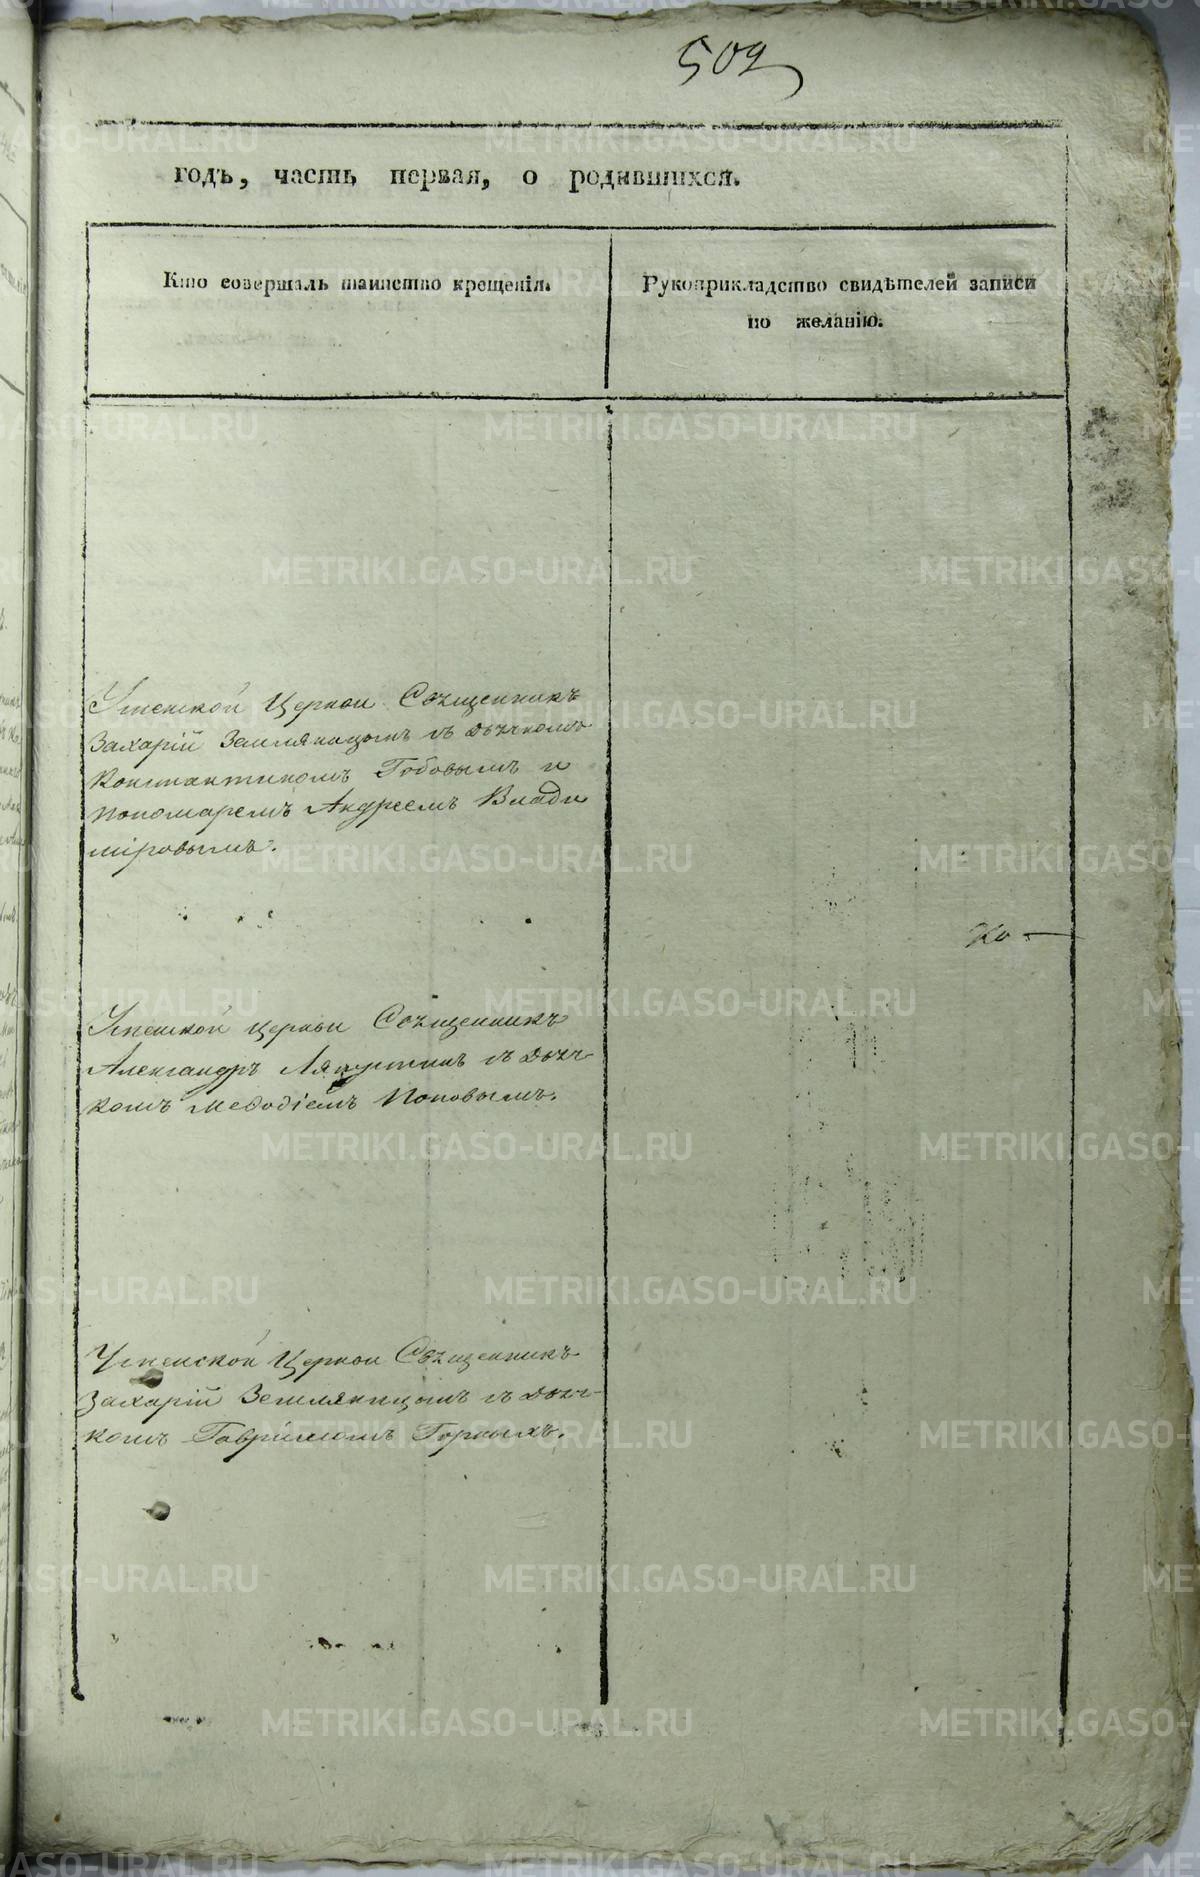 509
годъ, часть первая, о родившихся.
Кто совершалъ таинство крещенія.
Рукоприкладство свидѣтелей записи
по желанію.
Успенской Церкви Священникъ
Захарій Земляницынъ съ Дьячкомъ
Константиномъ Гобовымъ и
пономаремъ Андреемъ Влади
міровымъ.
Ко
Успенской церкви Священникъ
Александръ Ляпустинъ съ Дьяч-
комъ Меѳодіемъ Поповымъ.
Успенской Церкви Священникъ
Захарій Земляницынъ съ Дьяч-
комъ Гавріиломъ Горныхъ.
METRIKI.GASO-URAL.RU